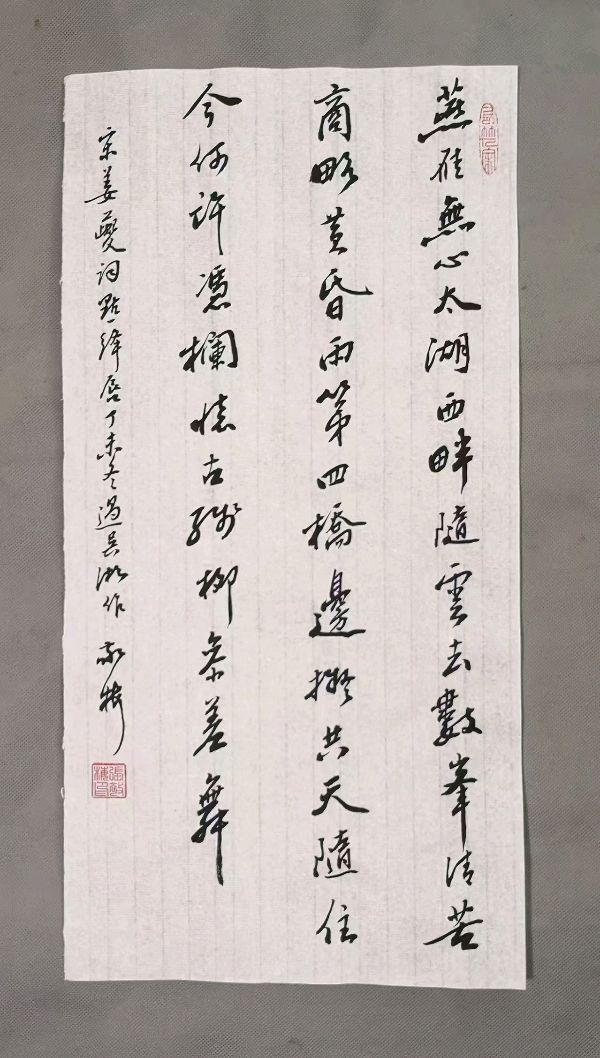 燕雁無心太湖西畔隨雲去數峯清苦
商略黃昏雨第四橋邊擬共天隨住
今何許憑欄懷古殘柳參差舞
宋姜夔詞點絳唇丁未冬過吳淞作 敬